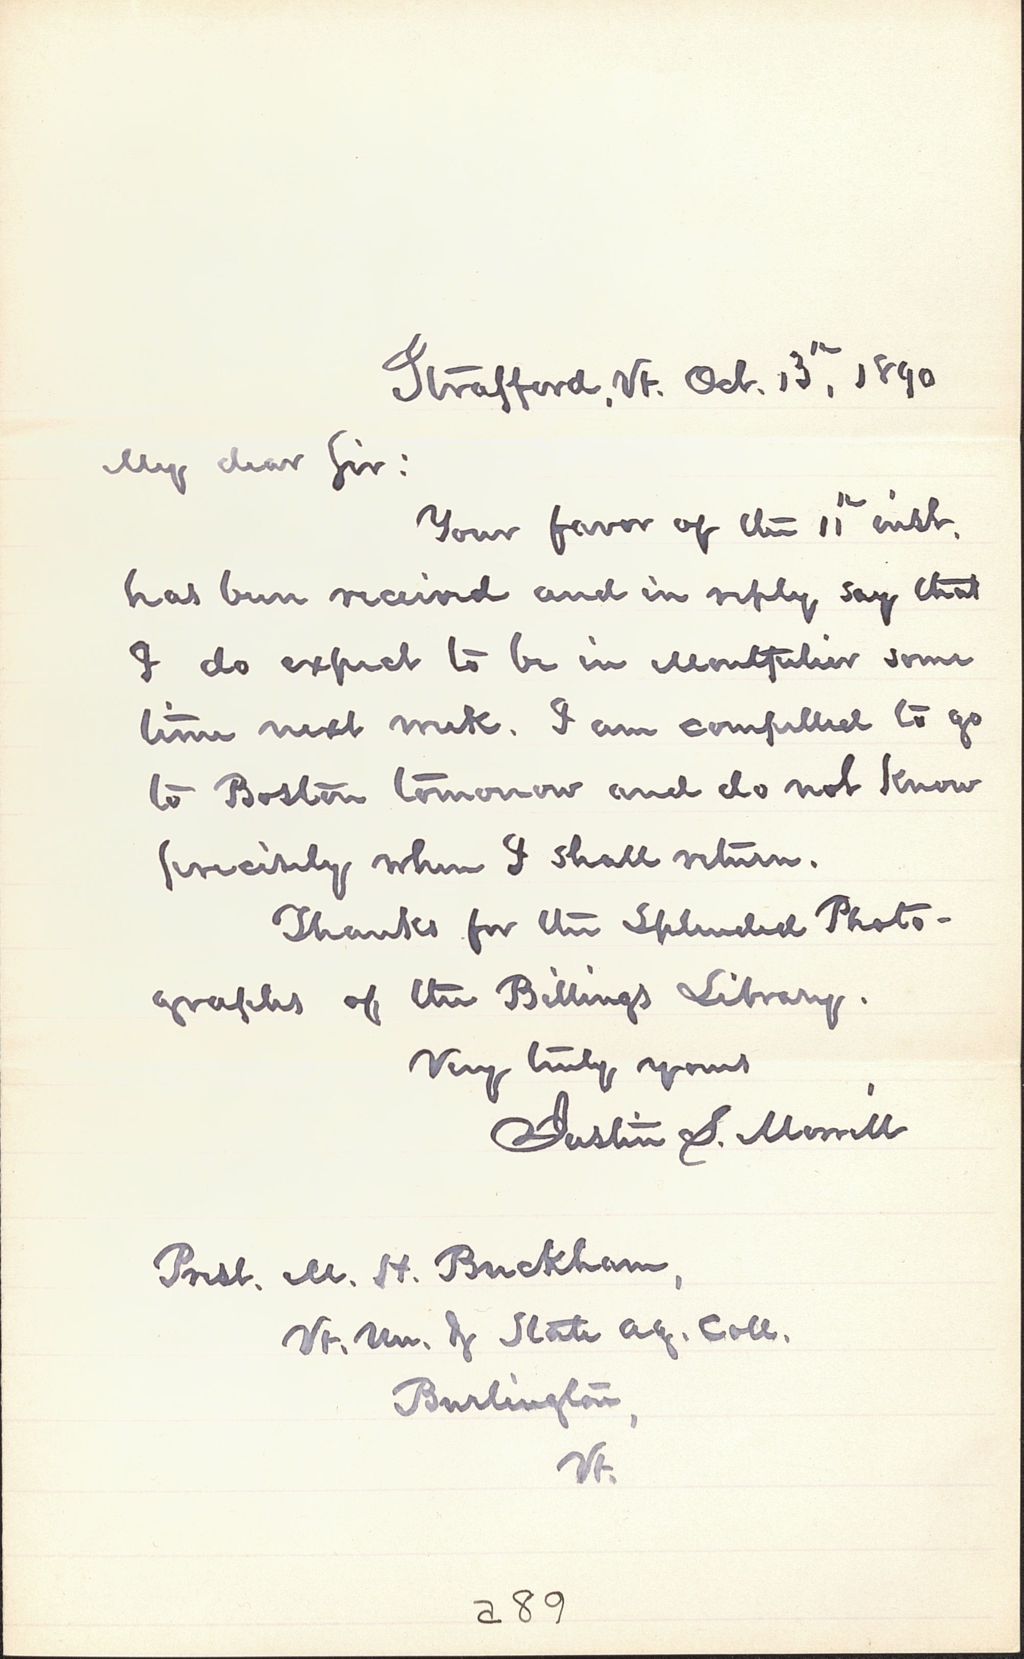 Strafford, Vt. Oct. 13th, 1890
My dear Sir:
Your favor of the 11th inst.
has been received and in reply say that
I do expect to be in Montpelier some
time next week. I am compelled to go
to Boston tomorrow and do not know
precisely when I shall return.
Thanks for the splendid Photo-
graphs of the Billings Library.
Very truly yours
Justin S. Morrill
Prest. M. H. Buckham,
Vt. Un. & State Ag. Coll.
Burlington,
Vt.
a89